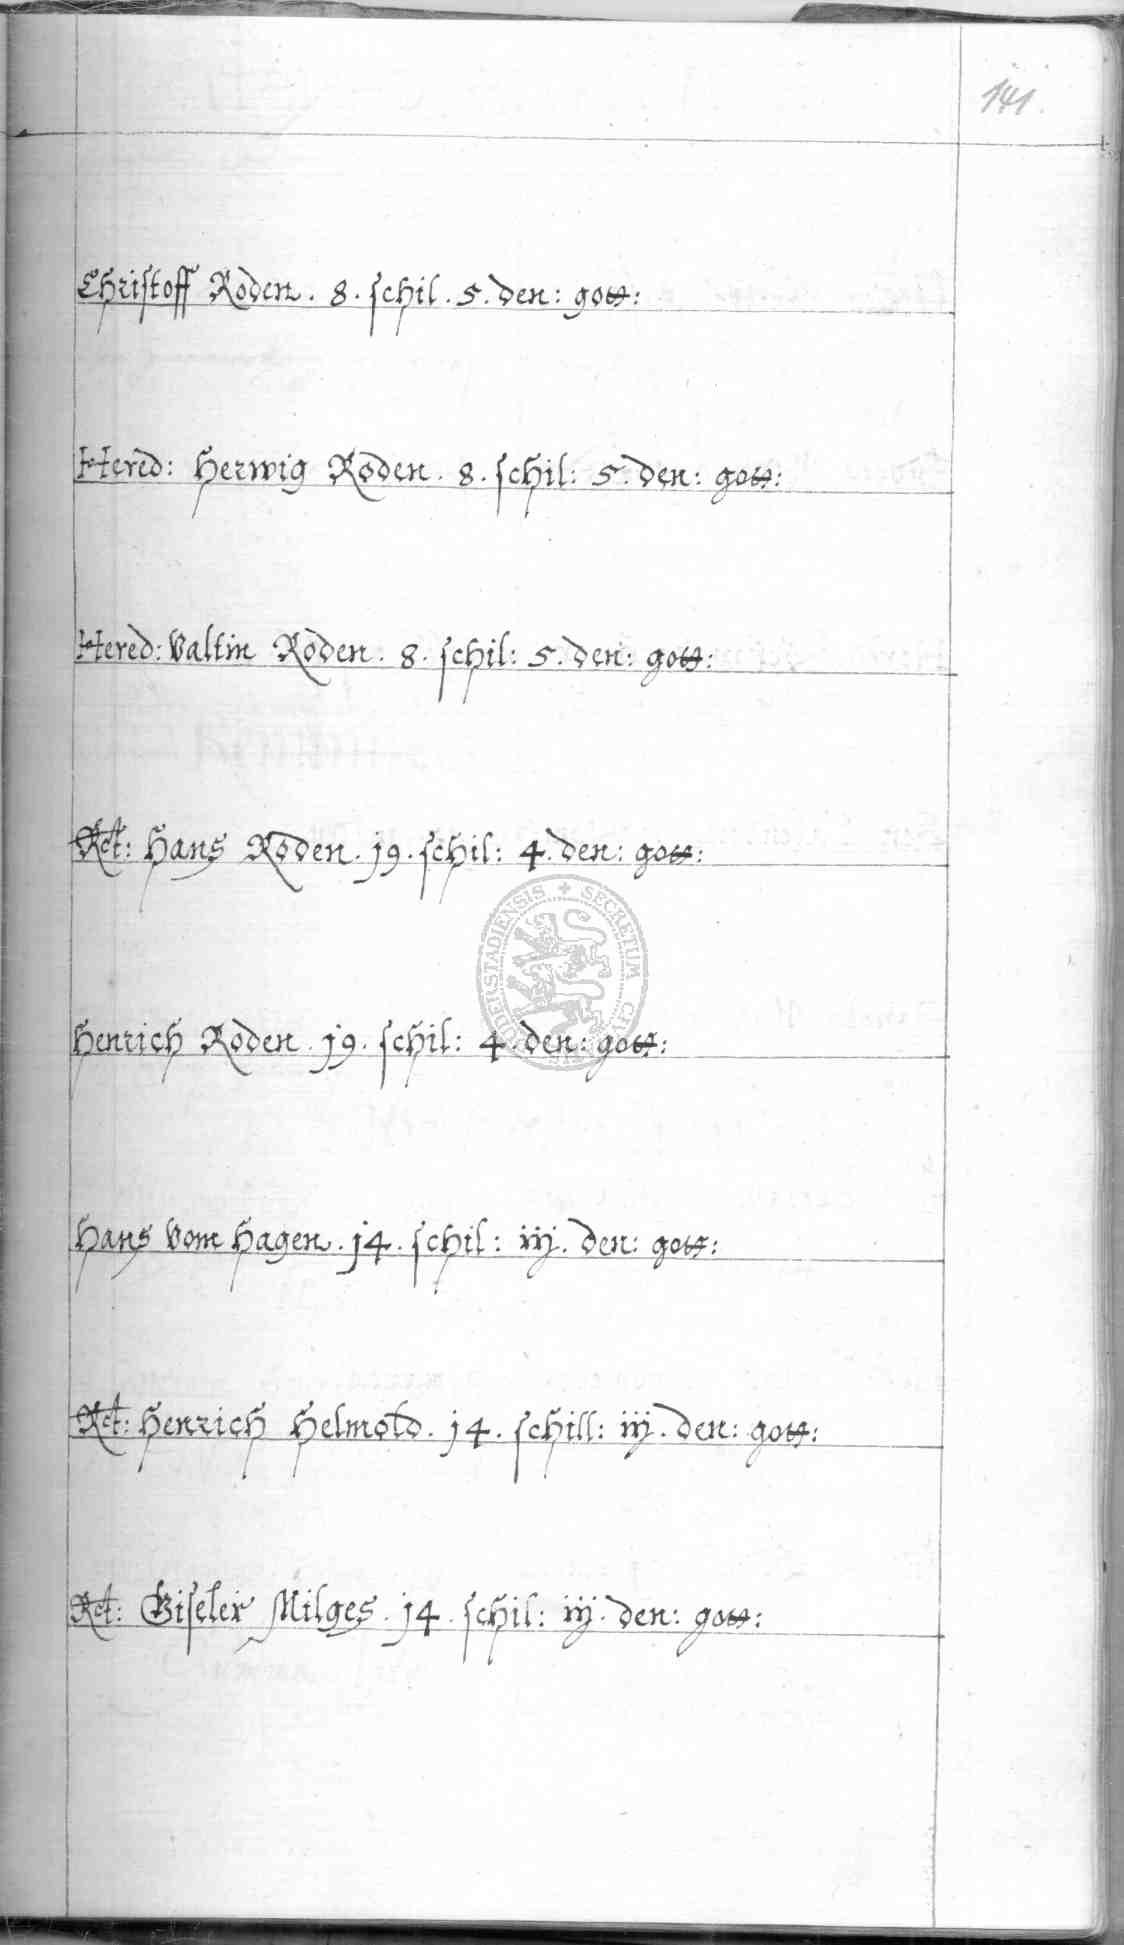 141.
Christoff Roden. 8. schil. 5. den: gott:
Hered: Herwig Roden. 8. schil: 5. den: gott:
Hered: Valtin Roden. 8. schil: 5. den: gott:
Rct: Hans Roden. 19. schil: 4. den: gott:
Henrich Roden. 19. schil: 4. den: gott:
Hans Vom Hagen. 14. schil: iij. den: gott:
Rct: Henrich Helmold. 14. schill: iij. den: gott:
Rct: Giseler Milges. 14. schil: iij. den: gott: